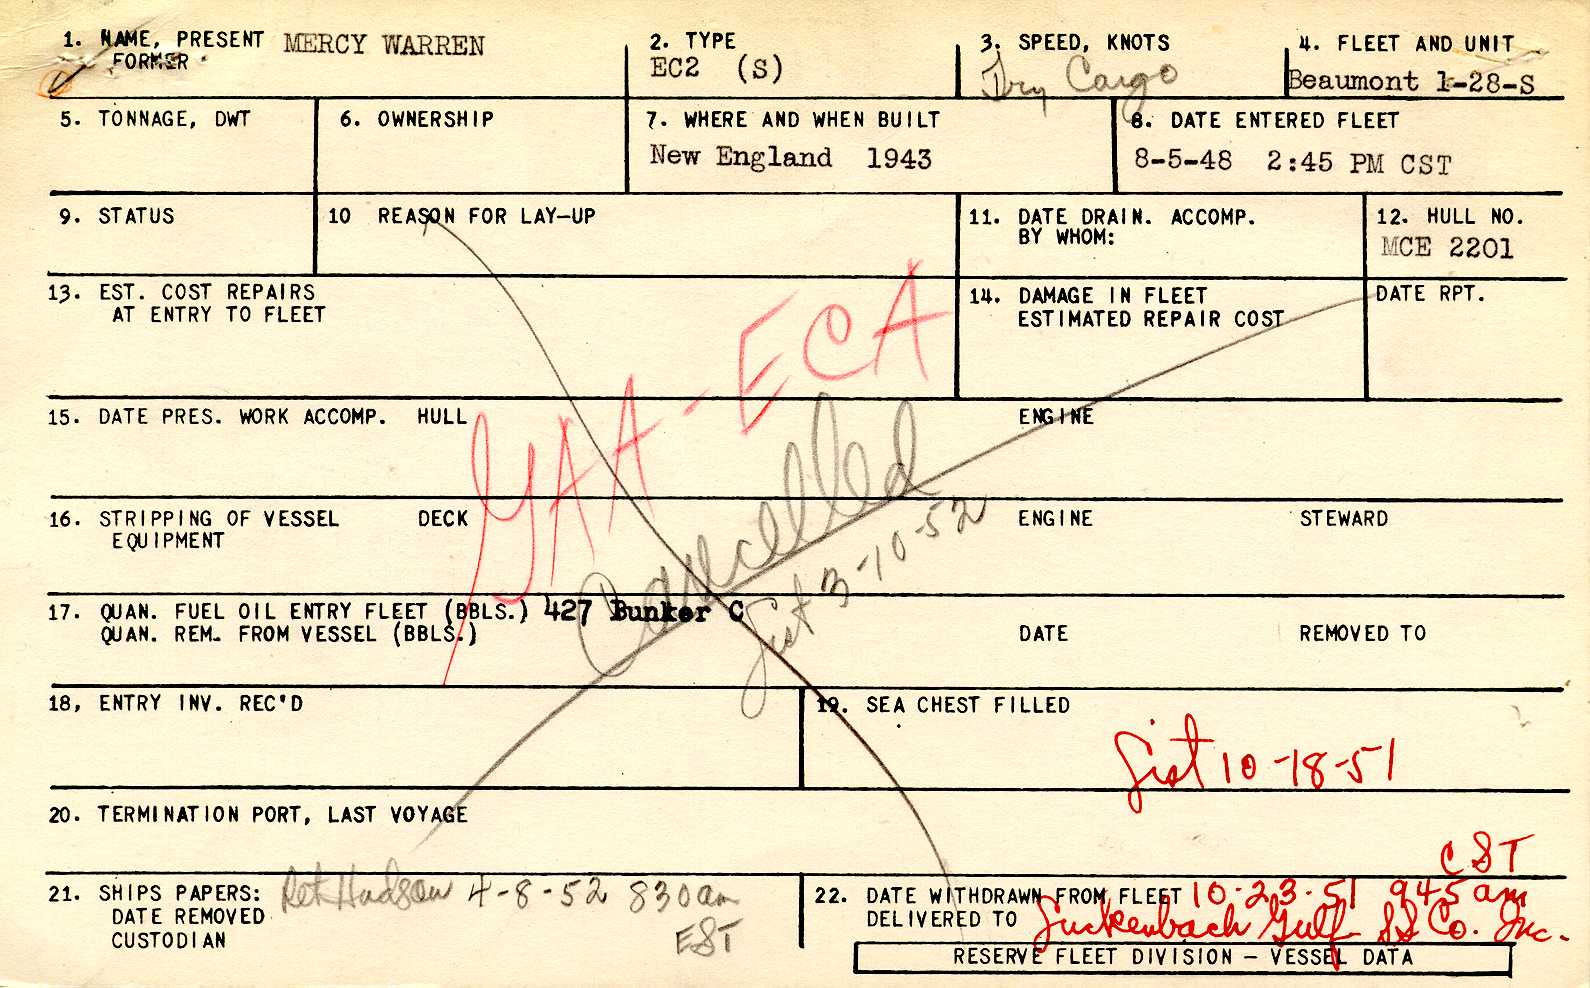 1. NAME, PRESENT MERCY WARREN
FORMER
2. TYPE
EC2 (S)
3. SPEED, KNOTS
Dry Cargo
4. FLEET AND UNIT
Beaumont 1-28-S
5. TONNAGE, DWT
6. OWNERSHIP
7. WHERE AND WHEN BUILT
New England 1943
8. DATE ENTERED FLEET
8-5-48 2:45 PM CST
9. STATUS
10 REASON FOR LAY-UP
11. DATE DRAIN. ACCOMP.
BY WHOM:
12. HULL NO.
MCE 2201
13. EST. COST REPAIRS
AT ENTRY TO FLEET
14. DAMAGE IN FLEET
ESTIMATED REPAIR COST
DATE RPT.
GAA-ECA
15. DATE PRES. WORK ACCOMP. HULL
ENGINE
Cancelled
16. STRIPPING OF VESSEL DECK
EQUIPMENT
ENGINE
STEWARD
List 3-10-52
17. QUAN. FUEL OIL ENTRY FLEET (BBLS.) 427 Bunker C
QUAN. REM. FROM VESSEL (BBLS.)
DATE
REMOVED TO
18, ENTRY INV. REC'D
19. SEA CHEST FILLED
List 10-18-51
20. TERMINATION PORT, LAST VOYAGE
21. SHIPS PAPERS: Ret Hudson 4-8-52 830am
DATE REMOVED
CUSTODIAN
EST
CST
22. DATE WITHDRAWN FROM FLEET 10-23-51 945am
DELIVERED TO Luckenbach Gulf SS Co. Inc.
RESERVE FLEET DIVISION – VESSEL DATA